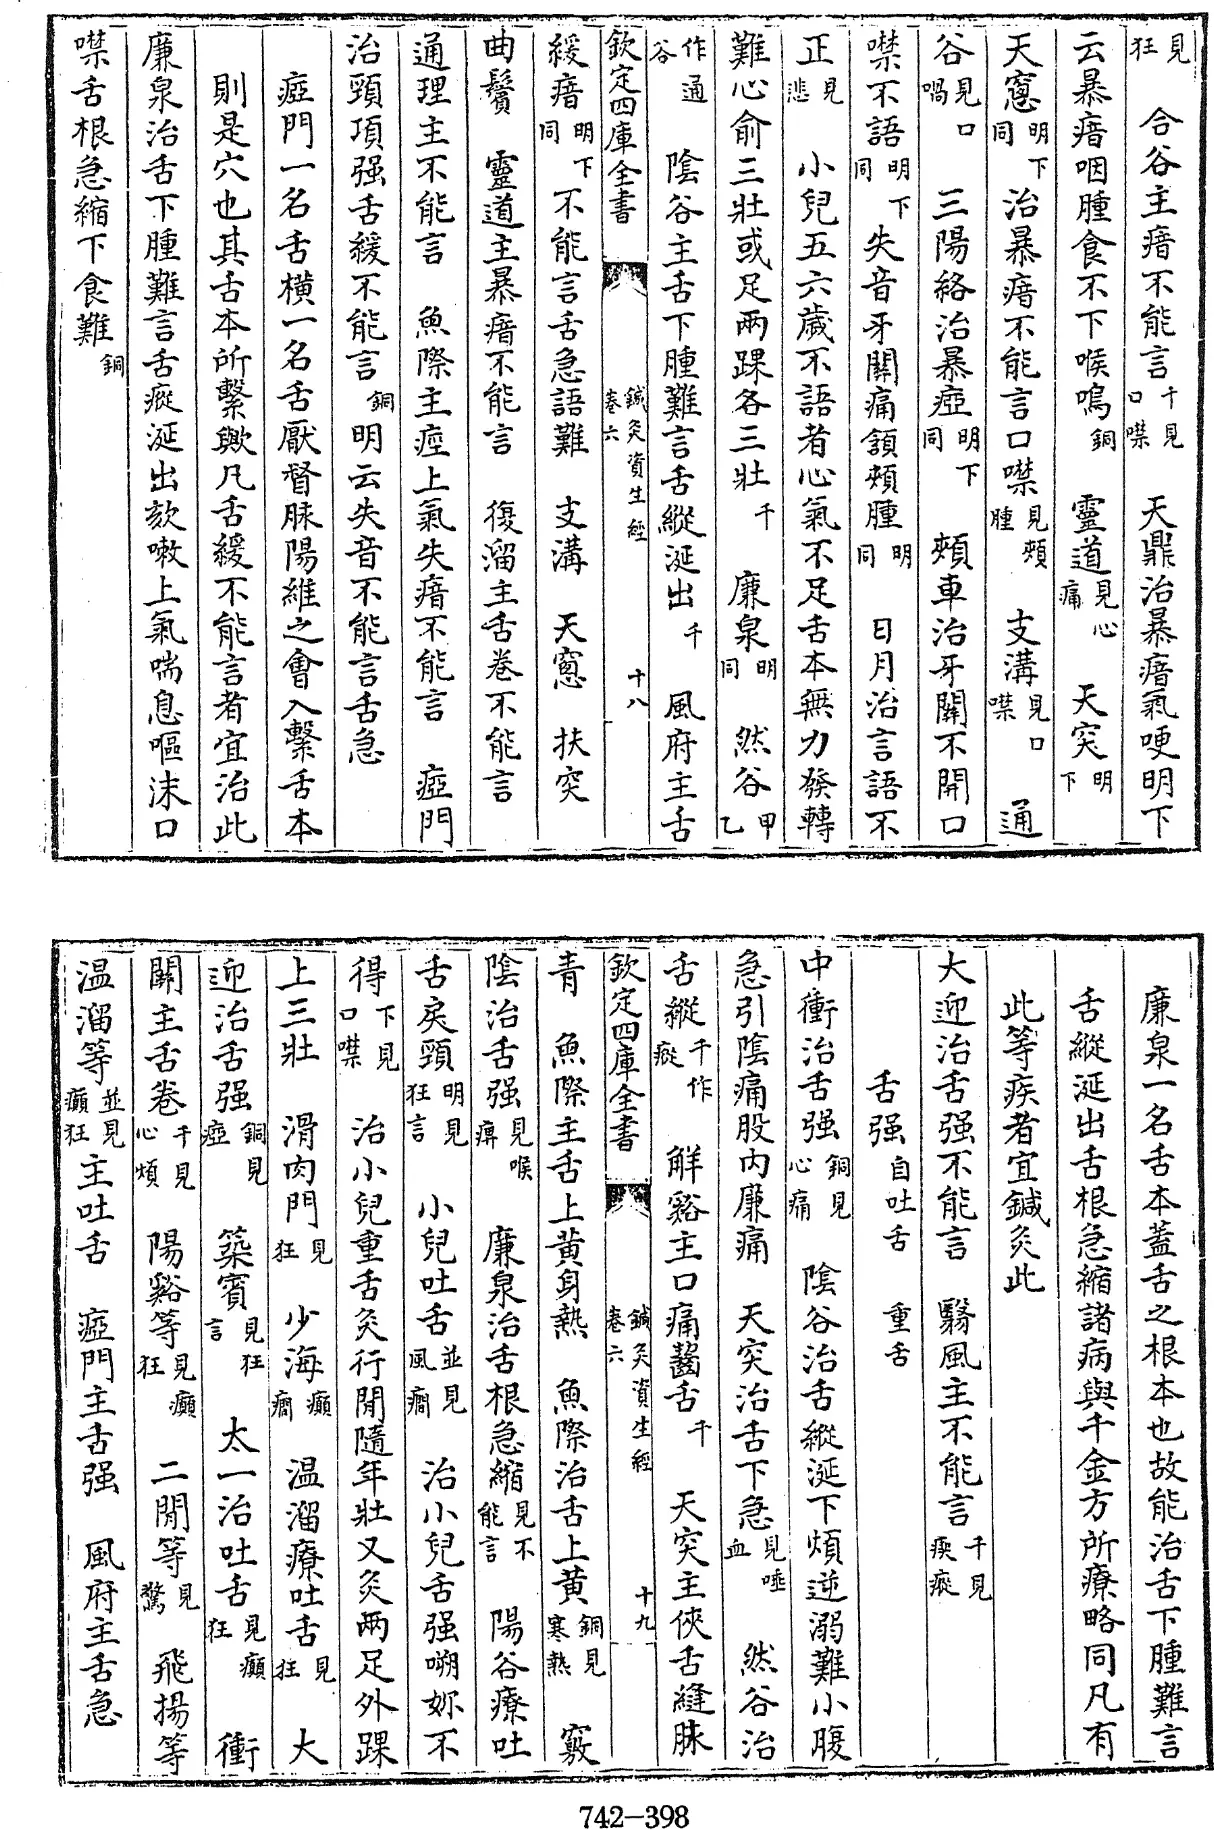 見狂　合谷主瘖不能言千見口噤　天鼎治暴瘖氣哽明下
云暴瘖咽腫食不下喉鳴銅　靈道見心痛　天突明下
天窻明下同　治暴瘖不能言口噤見頰腫　支溝見口噤　通
谷見口喎　三陽絡治暴瘂明下同　頰車治牙關不開口
噤不語明下同　失音牙關痛頷頰腫明同　日月治言語不
正見悲　小兒五六歲不語者心氣不足舌本無力發轉
難心俞三壯或足兩踝各三壯千　廉泉明同　然谷甲乙
作通谷　陰谷主舌下腫難言舌縱涎出千　風府主舌
欽定四庫全書　鍼灸資生經卷六　十八
緩瘖明下同　不能言舌急語難　支溝　天窻　扶突
曲鬢　靈道主暴瘖不能言　復溜主舌卷不能言
通理主不能言　魚際主瘂上氣失瘖不能言　瘂門
治頸項强舌緩不能言銅　明云失音不能言舌急
瘂門一名舌橫一名舌厭督脉陽維之會入繫舌本
則是穴也其舌本所繫歟凡舌緩不能言者宜治此
廉泉治舌下腫難言舌瘲涎出欬嗽上氣喘息嘔沫口
噤舌根急縮下食難銅
廉泉一名舌本蓋舌之根本也故能治舌下腫難言
舌縱涎出舌根急縮諸病與千金方所療略同凡有
此等疾者宜鍼灸此
大迎治舌强不能言　翳風主不能言千見瘈瘲
舌强自吐舌　重舌
中衝治舌强銅見心痛　陰谷治舌縱涎下煩逆溺難小腹
急引陰痛股内廉痛　天突治舌下急見唾血　然谷治
舌縱千作瘲　解谿主口痛齧舌千　天突主俠舌縫脉
欽定四庫全書　鍼灸資生經卷六　十九
青　魚際主舌上黄身熱　魚際治舌上黄銅見寒熱　竅
陰治舌强見喉痹　廉泉治舌根急縮見不能言　陽谷療吐
舌戾頸明見狂言　小兒吐舌並見風癎　治小兒舌强嗍妳不
得下見口噤　治小兒重舌灸行間隨年壯又灸兩足外踝
上三壯　滑肉門見狂　少海癲癎　温溜療吐舌見狂　大
迎治舌强銅見瘂　築賓見狂言　太一治吐舌見癲狂　衝
關主舌卷千見心煩　陽谿等見癲狂　二閒等見驚　飛揚等
温溜等並見癲狂主吐舌　瘂門主舌强　風府主舌急
742-398